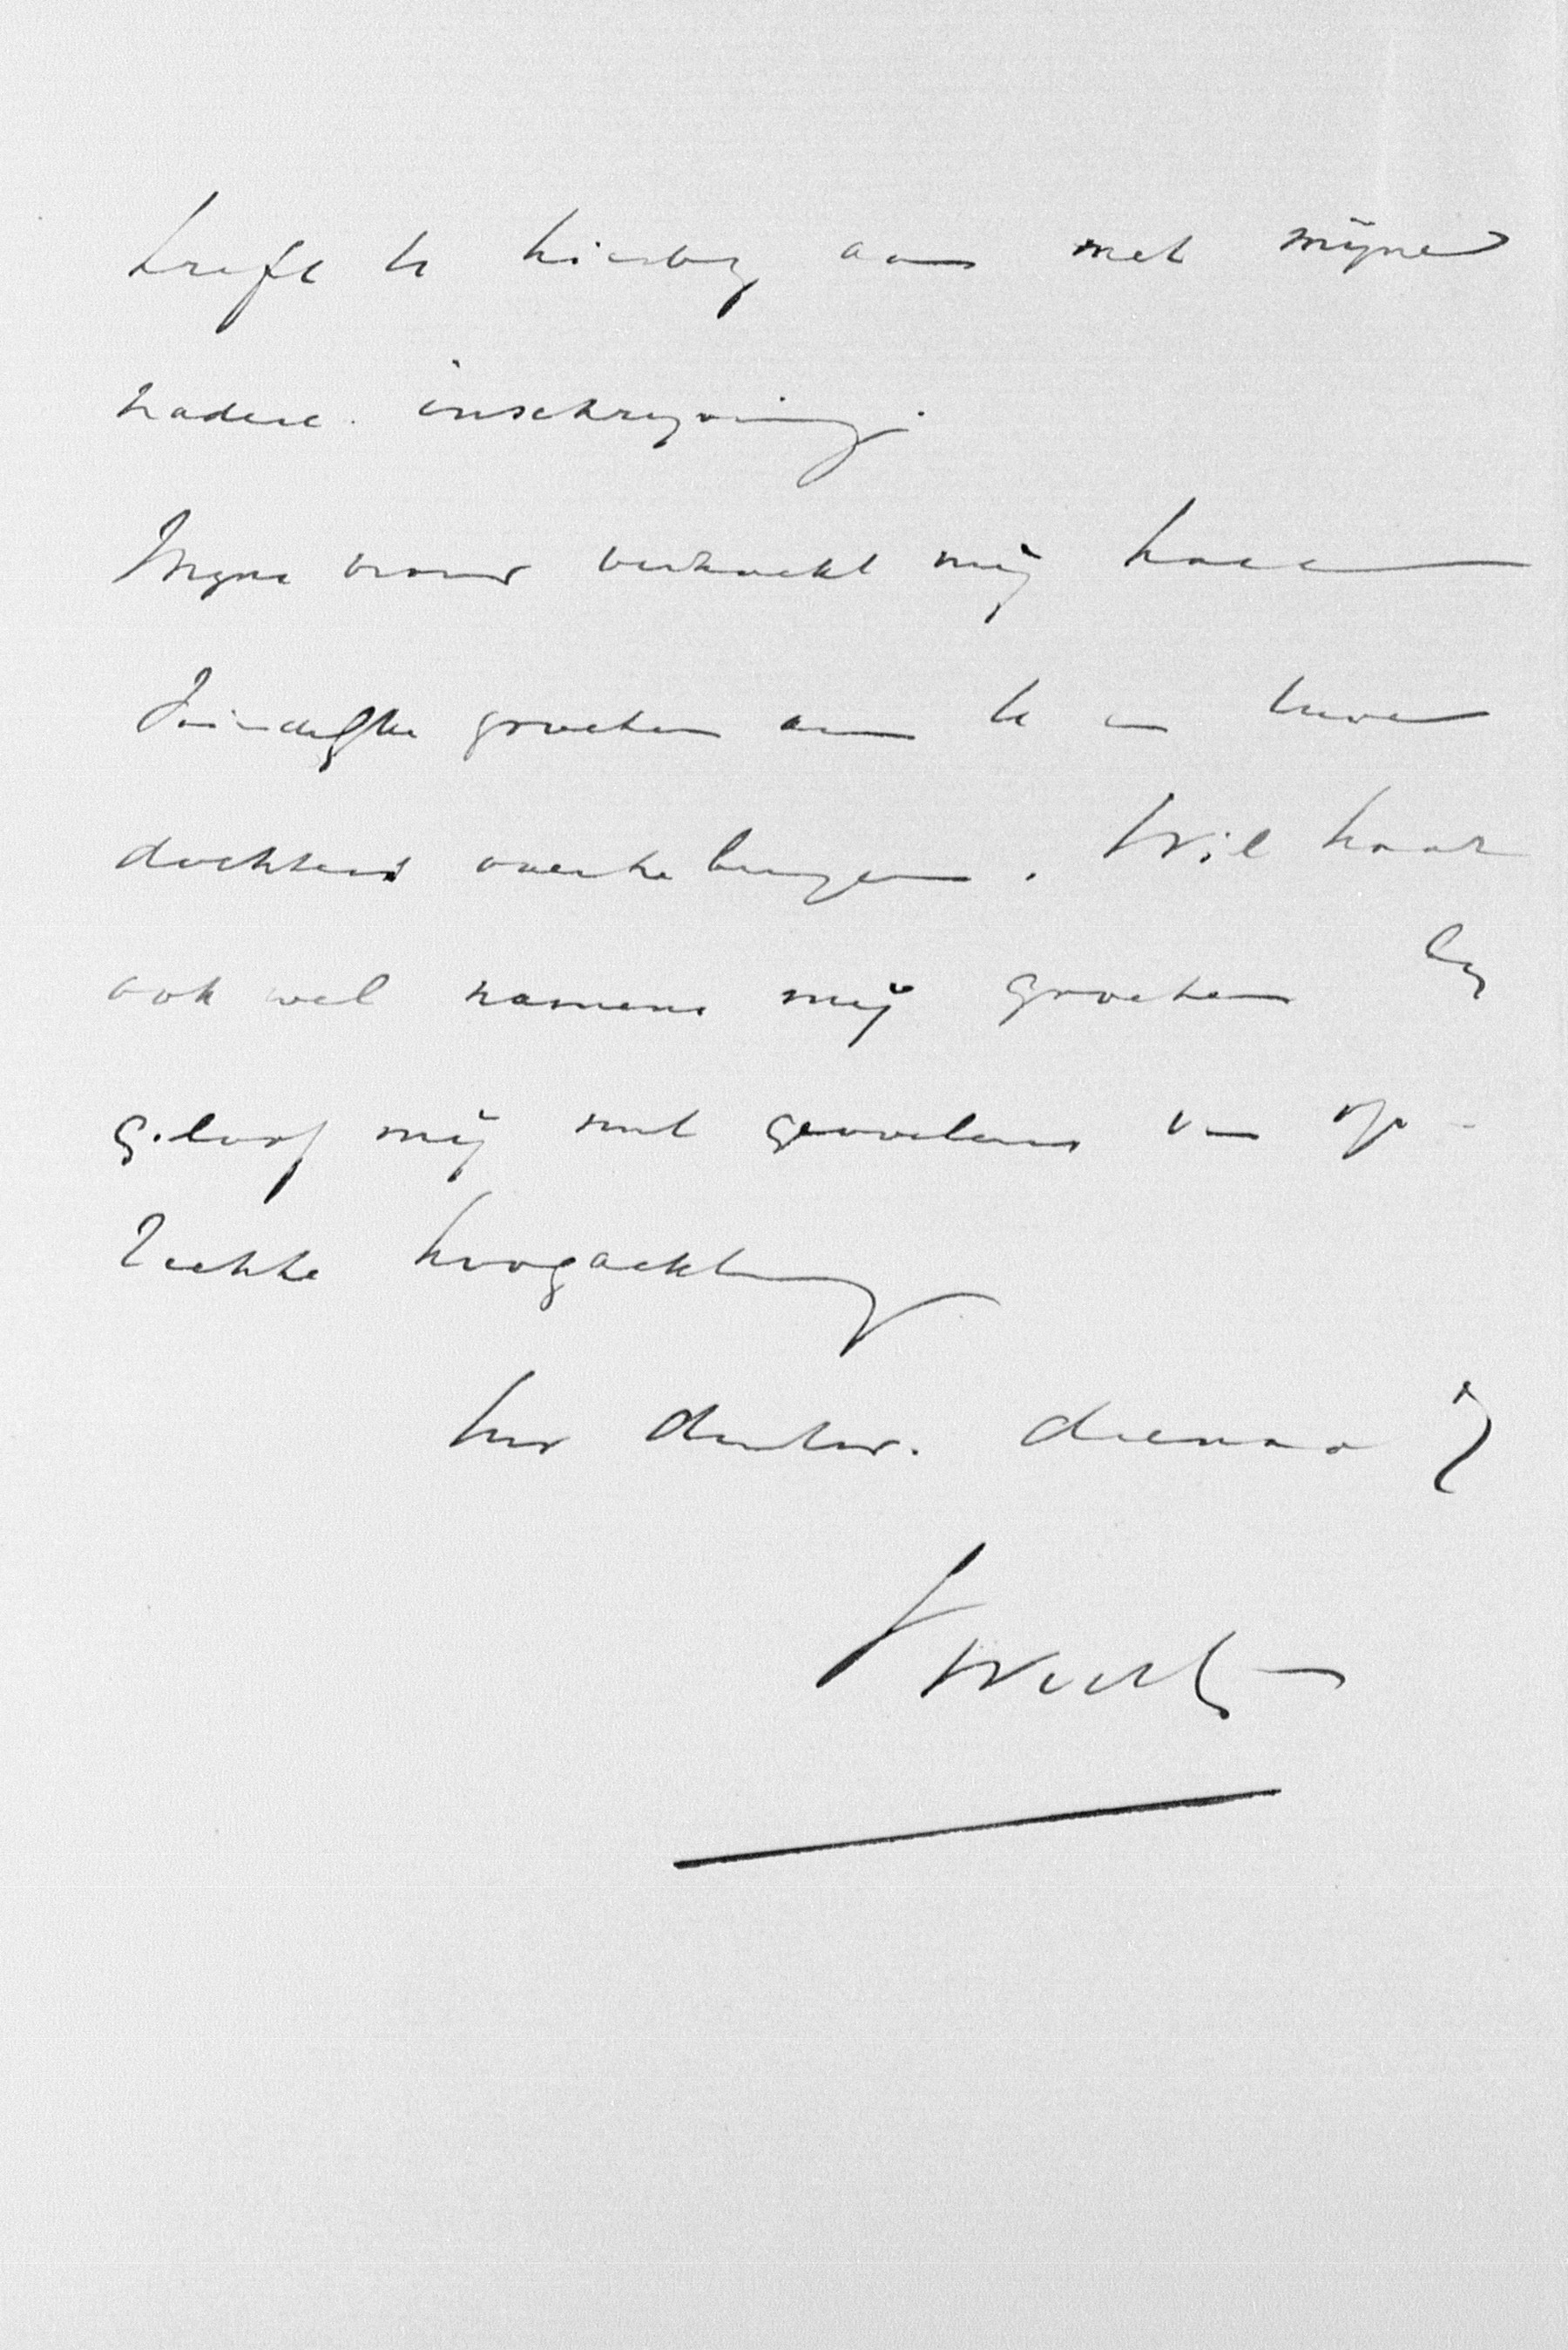 treft U hierbij aan met mijne
nadere inschrijving.
Mijne vrouw verzoekt mij hare
vriendelijke groeten aan U en Uwe
dochters over te brengen. Wil haar
ook wel namens mij groeten &
geloof mij met gevoelens van op-
rechte hoogachting
Uw dienstw. dienaar